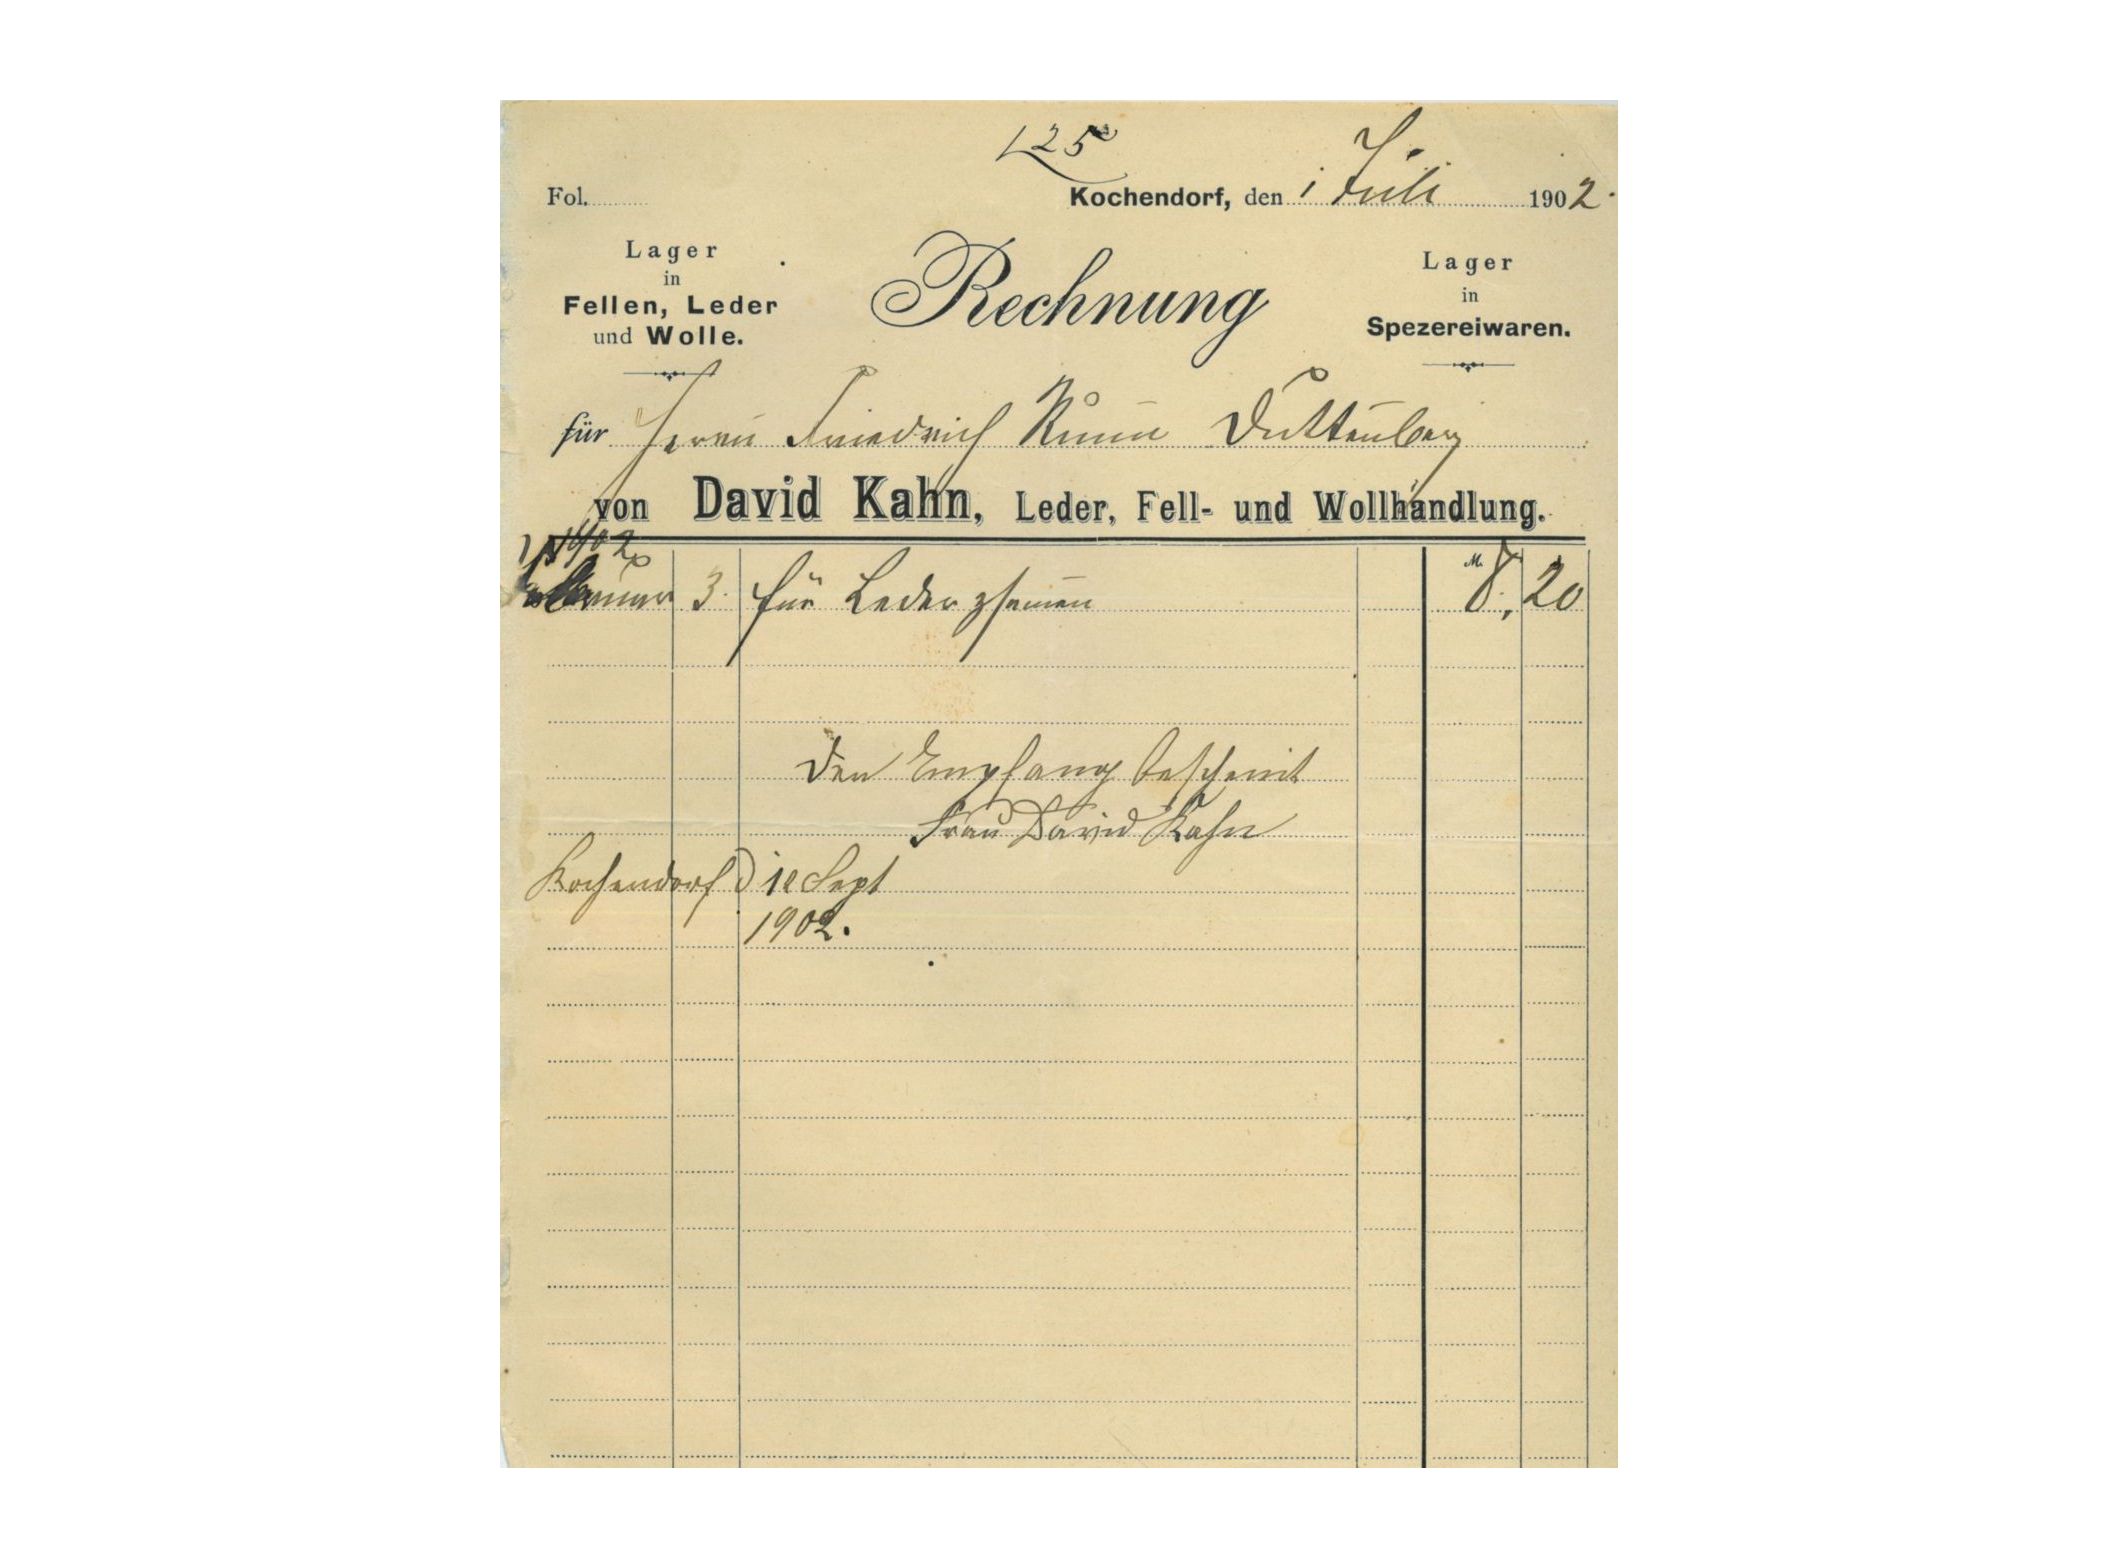 125
Fol. Kochendorf, den 1 Juli 1902.
Lager
in
Fellen, Leder
und Wolle.
Rechnung
Lager
in
Spezereiwaren.
für Herrn Friedrich Duttenberg
von David Kahn, Leder, Fell- und Wollhandlung.
1902
Februar 3. für Leder M. 8, 20
den Empfang bescheint
Frau David Kahn
Kochendorf d Sept
1902.